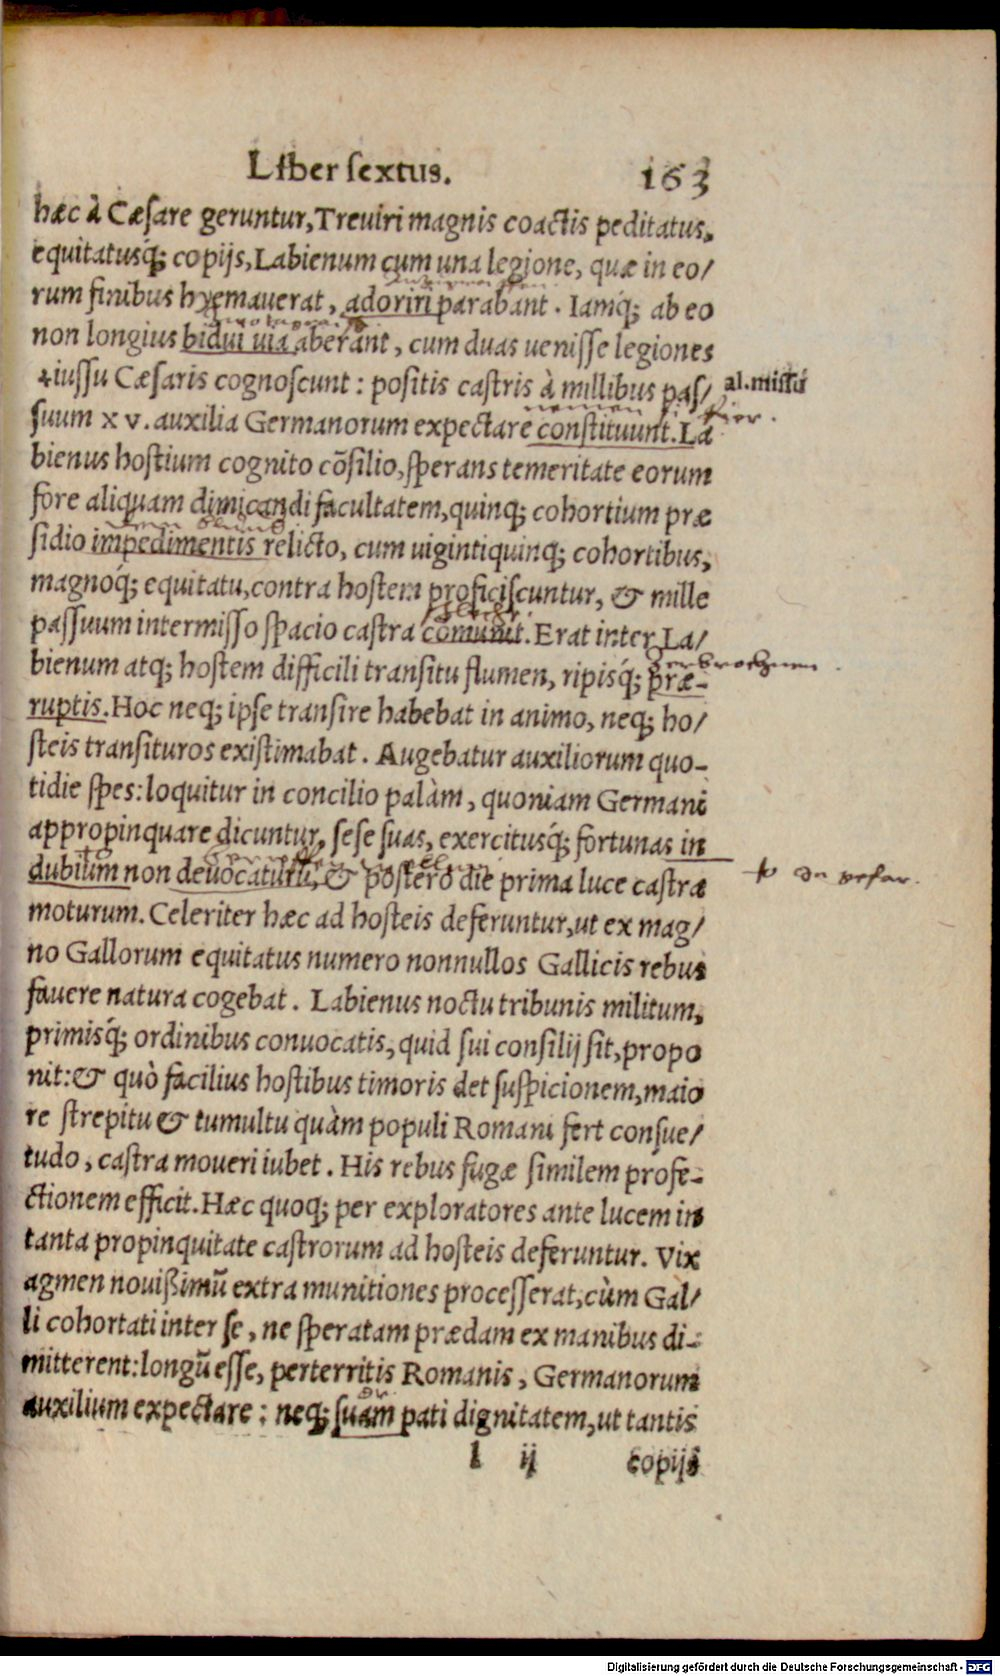 Liber sextus. 163
hæc à Cæsare geruntur, Treuiri magnis coactis peditatus,
equitatusq́; copijs, Labienum cum una legione, quæ in eo/
rum finibus hyemauerat, adoriri parabant. Iamq́; ab eo
non longius bidui uia aberant, cum duas uenisse legiones
iussu Cæsaris cognoscunt: positis castris à millibus pas/ al. missu
suum xv. auxilia Germanorum expectare constituunt. La
bienus hostium cognito cōsilio, sperans temeritate eorum
fore aliquam dimicandi facultatem, quinq; cohortium præ
sidio impedimentis relicto, cum uigintiquinq; cohortibus,
magnoq́; equitatu, contra hostem proficiscuntur, & mille
passuum intermisso spacio castra comunit. Erat inter La/
bienum atq; hostem difficili transitu flumen, ripisq́; præ-
zerbrochnen
ruptis. Hoc neq; ipse transire habebat in animo, neq; ho/
steis transituros existimabat. Augebatur auxiliorum quo-
tidie spes: loquitur in concilio palàm, quoniam Germani
appropinquare dicuntur, sese suas, exercitusq́; fortunas in
dubium non deuocaturū, & postero die prima luce castra
moturum. Celeriter hæc ad hosteis deferuntur, ut ex mag/
no Gallorum equitatus numero nonnullos Gallicis rebus
fauere natura cogebat. Labienus noctu tribunis militum,
primisq́; ordinibus conuocatis, quid sui consilij sit, propo
nit: & quò facilius hostibus timoris det suspicionem, maio
re strepitu & tumultu quàm populi Romani fert consue/
tudo, castra moueri iubet. His rebus fugæ similem profe-
ctionem efficit. Hæc quoq; per exploratores ante lucem in
tanta propinquitate castrorum ad hosteis deferuntur. Vix
agmen nouißimū extra munitiones processerat, cùm Gal/
li cohortati inter se, ne speratam prædam ex manibus di-
mitterent: longū esse, perterritis Romanis, Germanorum
auxilium expectare: neq; suam pati dignitatem, ut tantis
l ij copijs
Digitalisierung gefördert durch die Deutsche Forschungsgemeinschaft - DFG